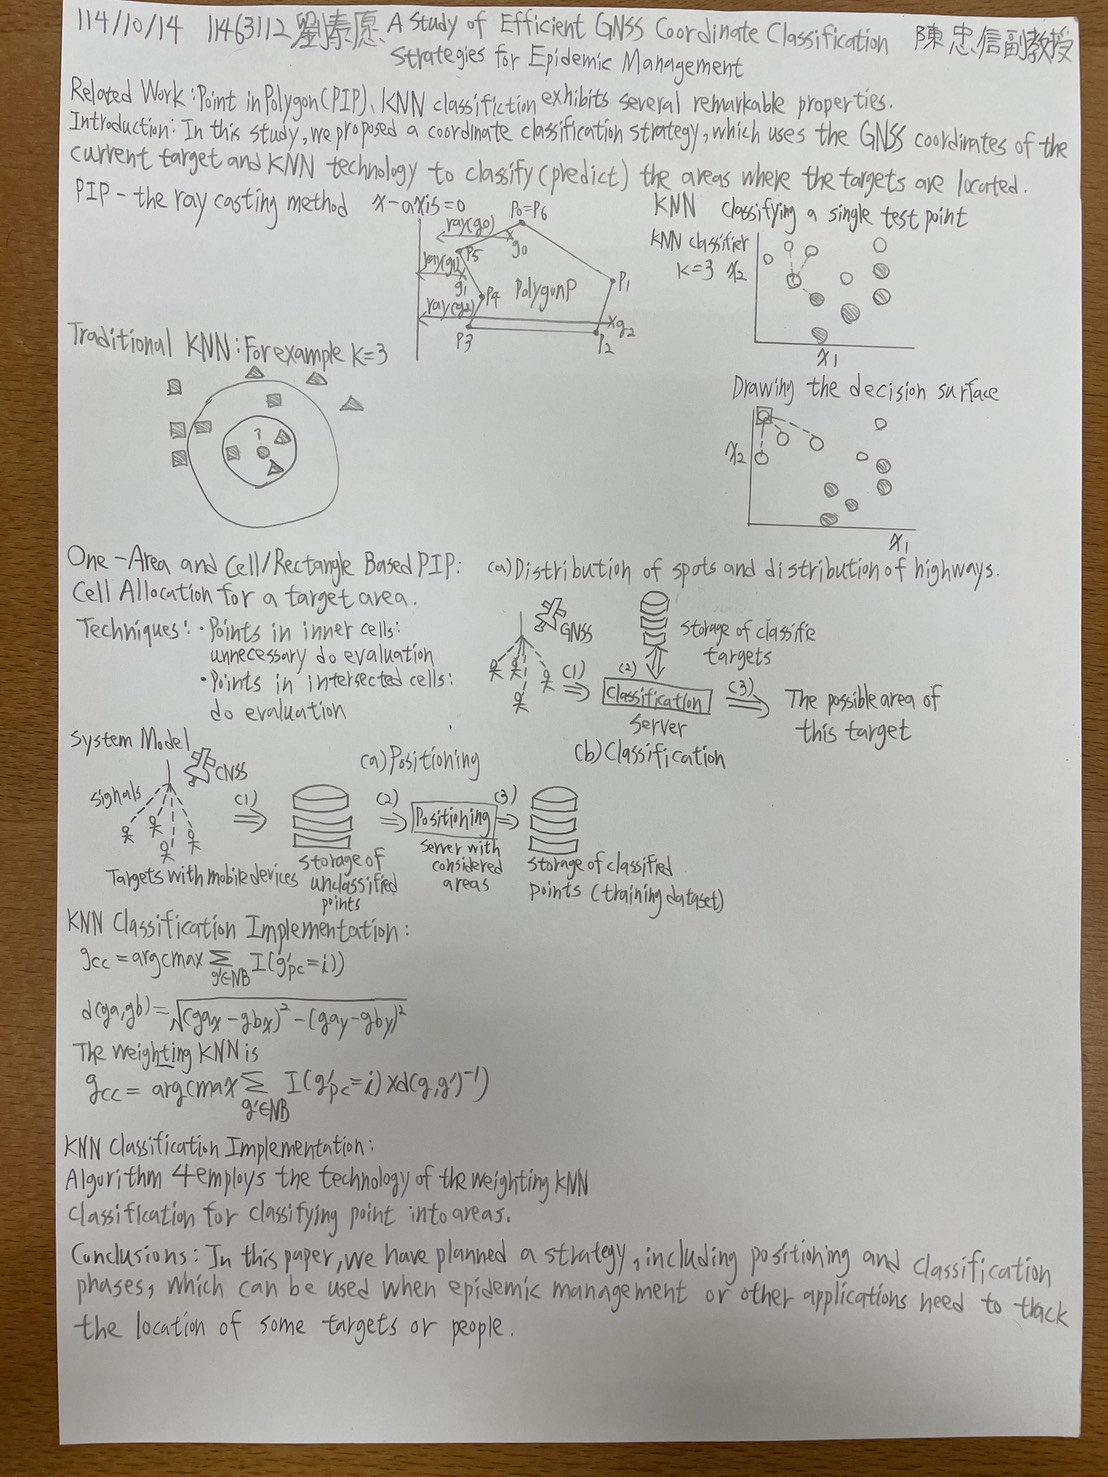 114/10/14 11463112劉素愿 A Study of Efficient GNSS Coordinate Classification 陳忠信副教授
Strategies for Epidemic Management
Related Work:Point in Polygon(PIP)、KNN classifiction exhibits several remarkable properties.
Introduction: In this study, we proposed a coordinate classification strategy, which uses the GNSS coordinates of the
current target and KNN technology to classify (predict) the areas where the targets are located.
PIP - the ray casting method
x-axis=0
P0=P6
ray(g0)
g0
P5
ray(g1)
g1
P4
Polygon P
P1
ray(g2)
xg2
P3
P2
KNN classifying a single test point
KNN classifier
K=3
x2
x1
Traditional KNN: For example K=3
?
Drawing the decision surface
x2
x1
One-Area and Cell/Rectangle Based PIP: (a) Distribution of spots and distribution of highways.
Cell Allocation for a target area.
Techniques: • Points in inner cells:
unnecessary do evaluation
• Points in intersected cells:
do evaluation
GNSS
storage of classifie
targets
(1)
(2)
Classification
server
(3)
The possible area of
this target
(b) Classification
System Model
(a) Positioning
GNSS
signals
(1)
(2)
Positioning
(3)
Targets with mobile devices
storage of
unclassified
points
server with
considered
areas
storage of classified
points (training dataset)
KNN Classification Implementation:
gcc = argcmax Σ I(g'pc=i))
g'∈NB
d(ga,gb)=√(gax-gbx)²-(gay-gby)²
The weighting KNN is
gcc = argcmax Σ I(g'pc=i)xd(g,g')⁻¹)
g'∈NB
KNN Classification Implementation:
Algorithm 4 employs the technology of the weighting KNN
classification for classifying point into areas.
Conclusions: In this paper, we have planned a strategy, including positioning and classification
phases, which can be used when epidemic management or other applications need to track
the location of some targets or people.